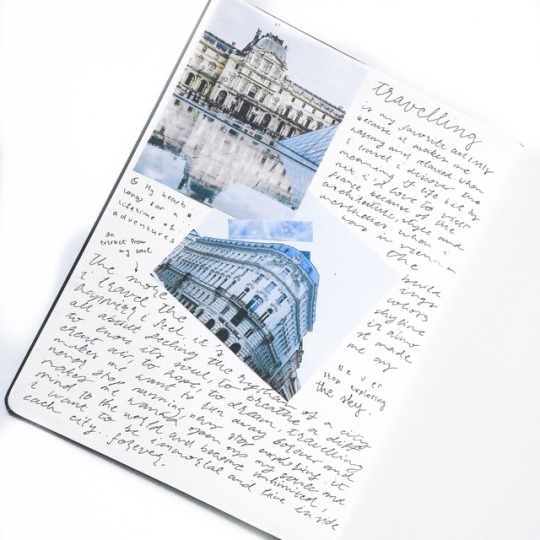 travelling
is my favorite activity
because it makes me
happy and relaxed when
i travel i discover the
meaning of life but by
me, i'd love to visit
France because of the
architecture, style and
aesthetics. when i
was in vienna
the
skyline
is also
it made
me cry
never
stop exploring
the sky.
My heart
longs for a
lifetime of
adventure.
an
extract from
my soul
the more
i travel the
happier i feel. it is
all about feeling the rhythm of a city
to know its soul, to breathe a diff
erent air, to hope, to dream. travelling
makes me want to run away forever and
never stop running, never stop exploring. it
makes me wanna open up my soul and
mind to the world and become unlimited,
i want to be immortal and live inside
each city. forever.